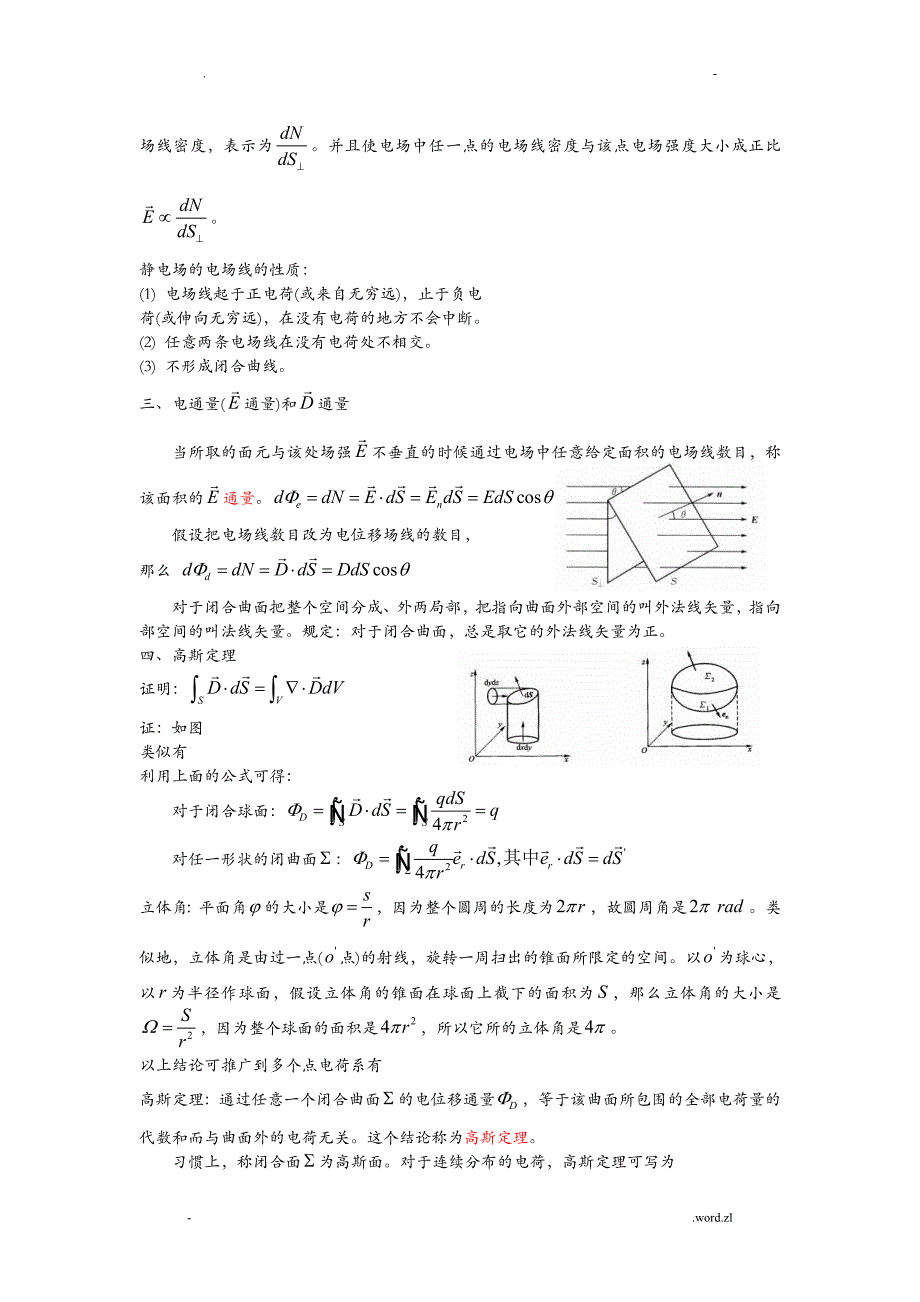 . -
场线密度，表示为 dN/dS⊥ 。并且使电场中任一点的电场线密度与该点电场强度大小成正比
E⃗ ∝ dN/dS⊥ 。
静电场的电场线的性质：
(1) 电场线起于正电荷(或来自无穷远)，止于负电
荷(或伸向无穷远)，在没有电荷的地方不会中断。
(2) 任意两条电场线在没有电荷处不相交。
(3) 不形成闭合曲线。
三、电通量(E⃗ 通量)和 D⃗ 通量
当所取的面元与该处场强 E⃗ 不垂直的时候通过电场中任意给定面积的电场线数目，称
该面积的 E⃗ 通量。dΦe = dN = E⃗ · dS⃗ = E⃗n dS⃗ = EdS cosθ
假设把电场线数目改为电位移场线的数目，
那么 dΦd = dN = D⃗ · dS⃗ = DdS cosθ
θ n θ E S⊥ S
对于闭合曲面把整个空间分成、外两局部，把指向曲面外部空间的叫外法线矢量，指向
部空间的叫法线矢量。规定：对于闭合曲面，总是取它的外法线矢量为正。
四、高斯定理
证明：∫S D⃗ · dS⃗ = ∫V ∇ · D⃗dV
证：如图
类似有
z dydz dS y dxdy O x
z Σ2 Σ1 en y O x
利用上面的公式可得：
对于闭合球面：ΦD = ∮S D⃗ · dS⃗ = ∮S qdS/4πr² = q
对任一形状的闭曲面 Σ：ΦD = ∮Σ q/4πr² e⃗r · dS⃗, 其中 e⃗r · dS⃗ = dS⃗'
立体角：平面角 φ 的大小是 φ = s/r ，因为整个圆周的长度为 2πr ，故圆周角是 2π rad 。类
似地，立体角是由过一点(o' 点)的射线，旋转一周扫出的锥面所限定的空间。以 o' 为球心，
以 r 为半径作球面，假设立体角的锥面在球面上截下的面积为 S ，那么立体角的大小是
Ω = S/r² ，因为整个球面的面积是 4πr² ，所以它所的立体角是 4π 。
以上结论可推广到多个点电荷系有
高斯定理：通过任意一个闭合曲面 Σ 的电位移通量 ΦD ，等于该曲面所包围的全部电荷量的
代数和而与曲面外的电荷无关。这个结论称为高斯定理。
习惯上，称闭合面 Σ 为高斯面。对于连续分布的电荷，高斯定理可写为
- .word.zl